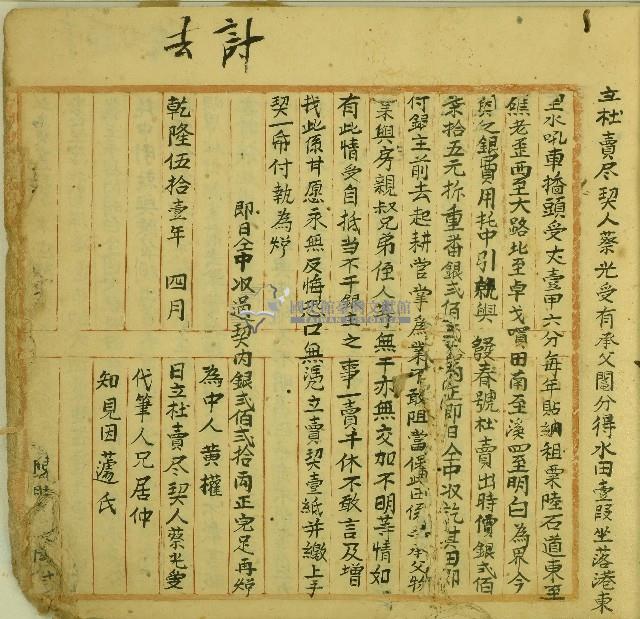 計去
立杜賣尽契人蔡光受有承父鬮分得水田壹叚坐落港東
里水吼車橋頭受丈壹甲六分每年貼納租粟陸石道東至
礁老歪西至大路北至卓戈嘪田南至溪四至明白為界今
因乏銀費用托中引就與 發春號杜賣出時價銀弍佰
柒拾五元折重番銀弍佰弍拾兩正即日仝中收訖其田即
付銀主前去起耕管掌為業不敢阻當保此田係承父物
業與房親叔兄弟侄人等無干亦無交加不明等情如
有此情受自抵当不干銀主之事一賣千休不敢言及增
找此係甘愿永無反悔恐口無憑立賣契壹紙并繳上手
契一帋付執為炤
即日仝中收過契內銀弍佰弍拾兩正完足再炤
為中人黃權
乾隆伍拾壹年 四月 日立杜賣尽契人蔡光受
代筆人兄居仲
知見因蘆氏
國史館臺灣文獻館
TAIWAN HISTORICA